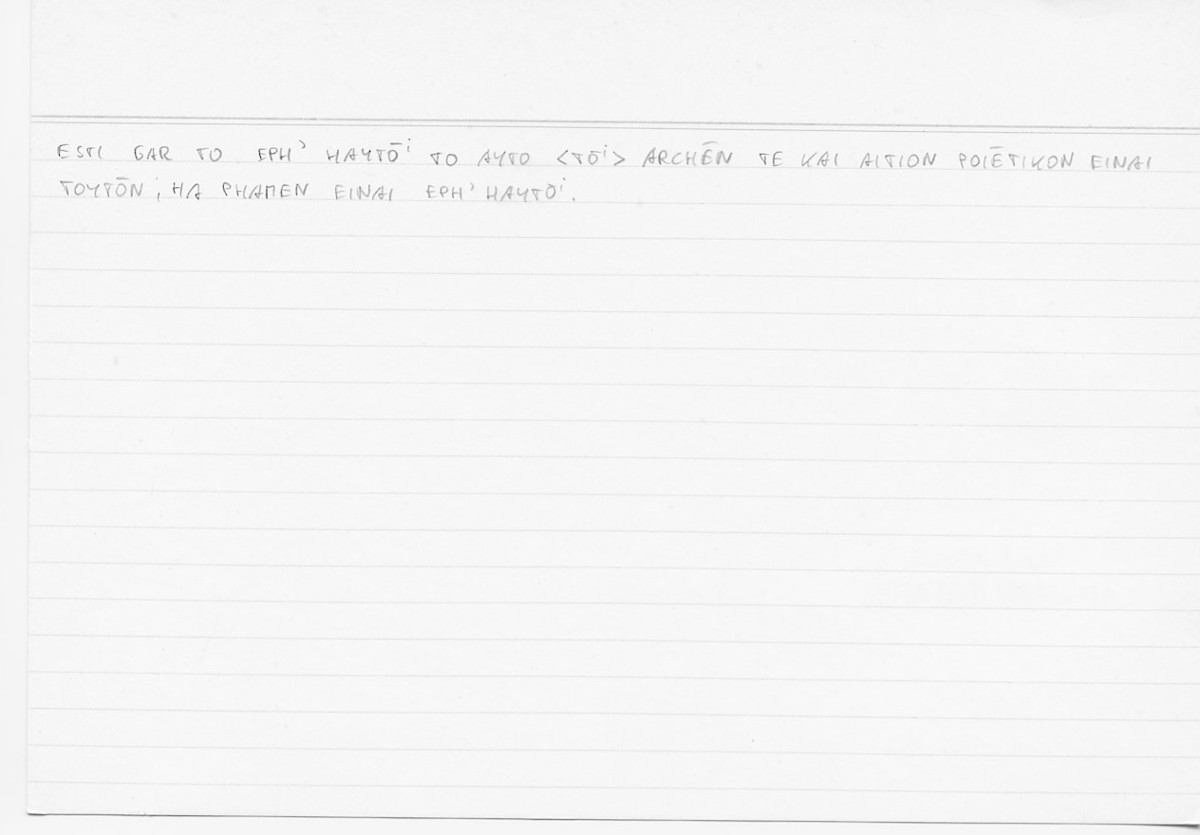 ESTI GAR TO EPH' HAYTŌⁱ TO AYTO <TŌⁱ> ARCHĒN TE KAI AITION POIĒTIKON EINAI
TOYTŌN, HA PHAMEN EINAI EPH' HAYTŌⁱ.